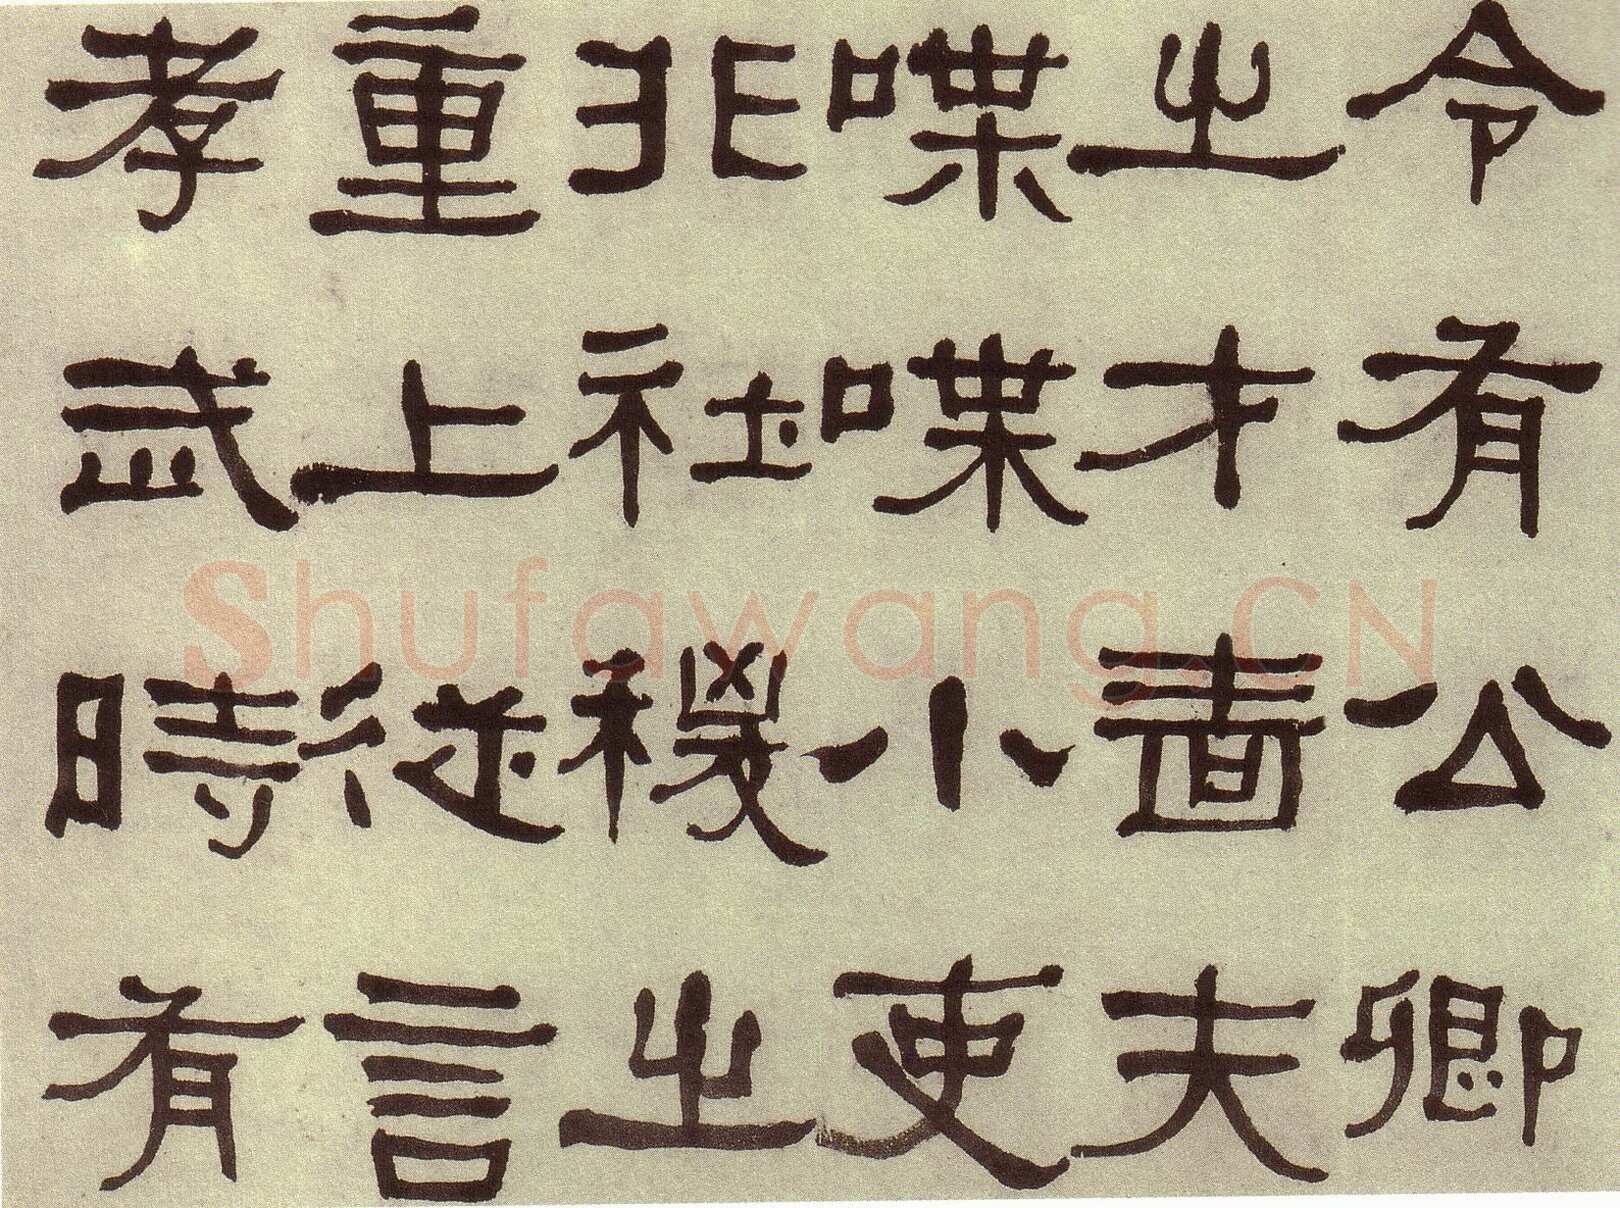 令有公卿
之才嗇夫
喋喋小吏
非社稷之
重上從言
孝武時有
Shufawang.CN